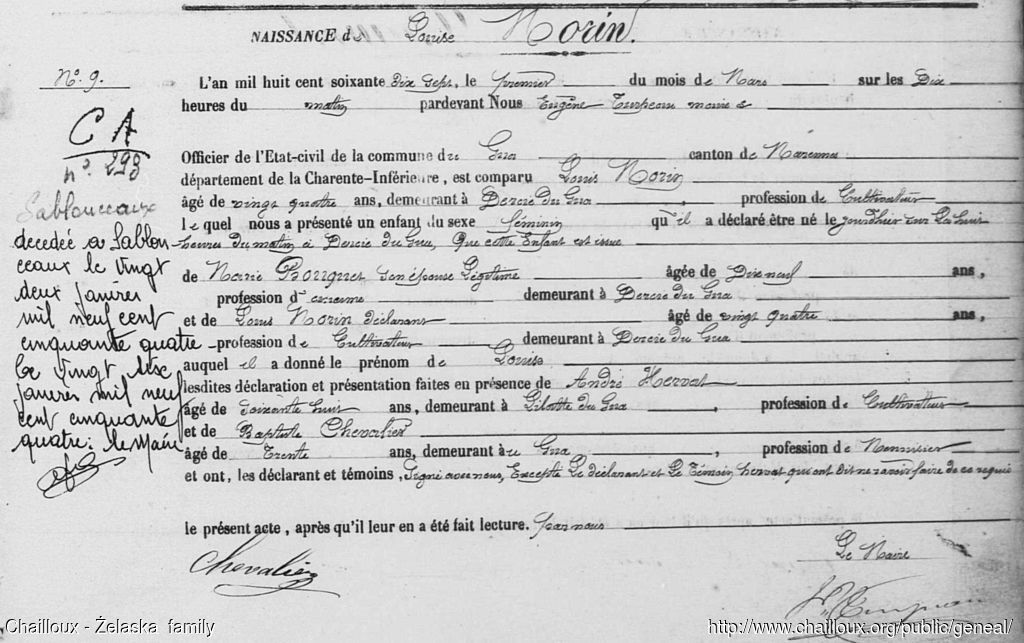 NAISSANCE de Louise Morin.
N° 9.
L'an mil huit cent soixante dix sept, le premier du mois de Mars sur les Dix
heures du matin pardevant Nous Eugène maire &
CA
n° 299
Officier de l'Etat-civil de la commune du Gua canton de Marennes
département de la Charente-Inférieure, est comparu Louis Morin
âgé de vingt quatre ans, demeurant à Dercie du Gua, profession de Cultivateur
lequel nous a présenté un enfant du sexe féminin qu'il a déclaré être né le jourdhier sur La huit
heures du matin à Dercie du Gua, Que cette Enfant est issue
de Marie Bouquet son épouse Légitime âgée de Dix neuf ans,
profession d' demeurant à Dercie du Gua
et de Louis Morin déclarant âgé de vingt quatre ans,
profession de Cultivateur demeurant à Dercie du Gua
auquel il a donné le prénom de Louise
lesdites déclaration et présentation faites en présence de André Hervat
âgé de soixante huit ans, demeurant à du Gua, profession de Cultivateur
et de Baptiste Chevalier
âgé de Trente ans, demeurant au Gua, profession de Menuisier
et ont, les déclarant et témoins, Signé avec nous, Excepté Le déclarant et Le Témoin hervat qui ont dit ne savoir faire de ce requis
le présent acte, après qu'il leur en a été fait lecture. par nous
Le Maire
Chevalier
Sablonceaux
decedée a Sablon-
ceaux le vingt
deux janvier
mil neuf cent
cinquante quatre
Le vingt six
janvier mil neuf
cent cinquante
quatre. le Maire
Chailloux - Żelaska family
http://www.chailloux.org/public/geneal/